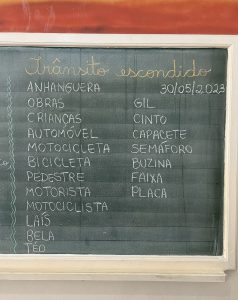 Trânsito escondido
ANHANGUERA 30/05/2023
OBRAS GIL
CRIANÇAS CINTO
AUTOMÓVEL CAPACETE
MOTOCICLETA SEMÁFORO
BICICLETA BUZINA
PEDESTRE FAIXA
MOTORISTA PLACA
MOTOCICLISTA
LAÍS
BELA
TÉO